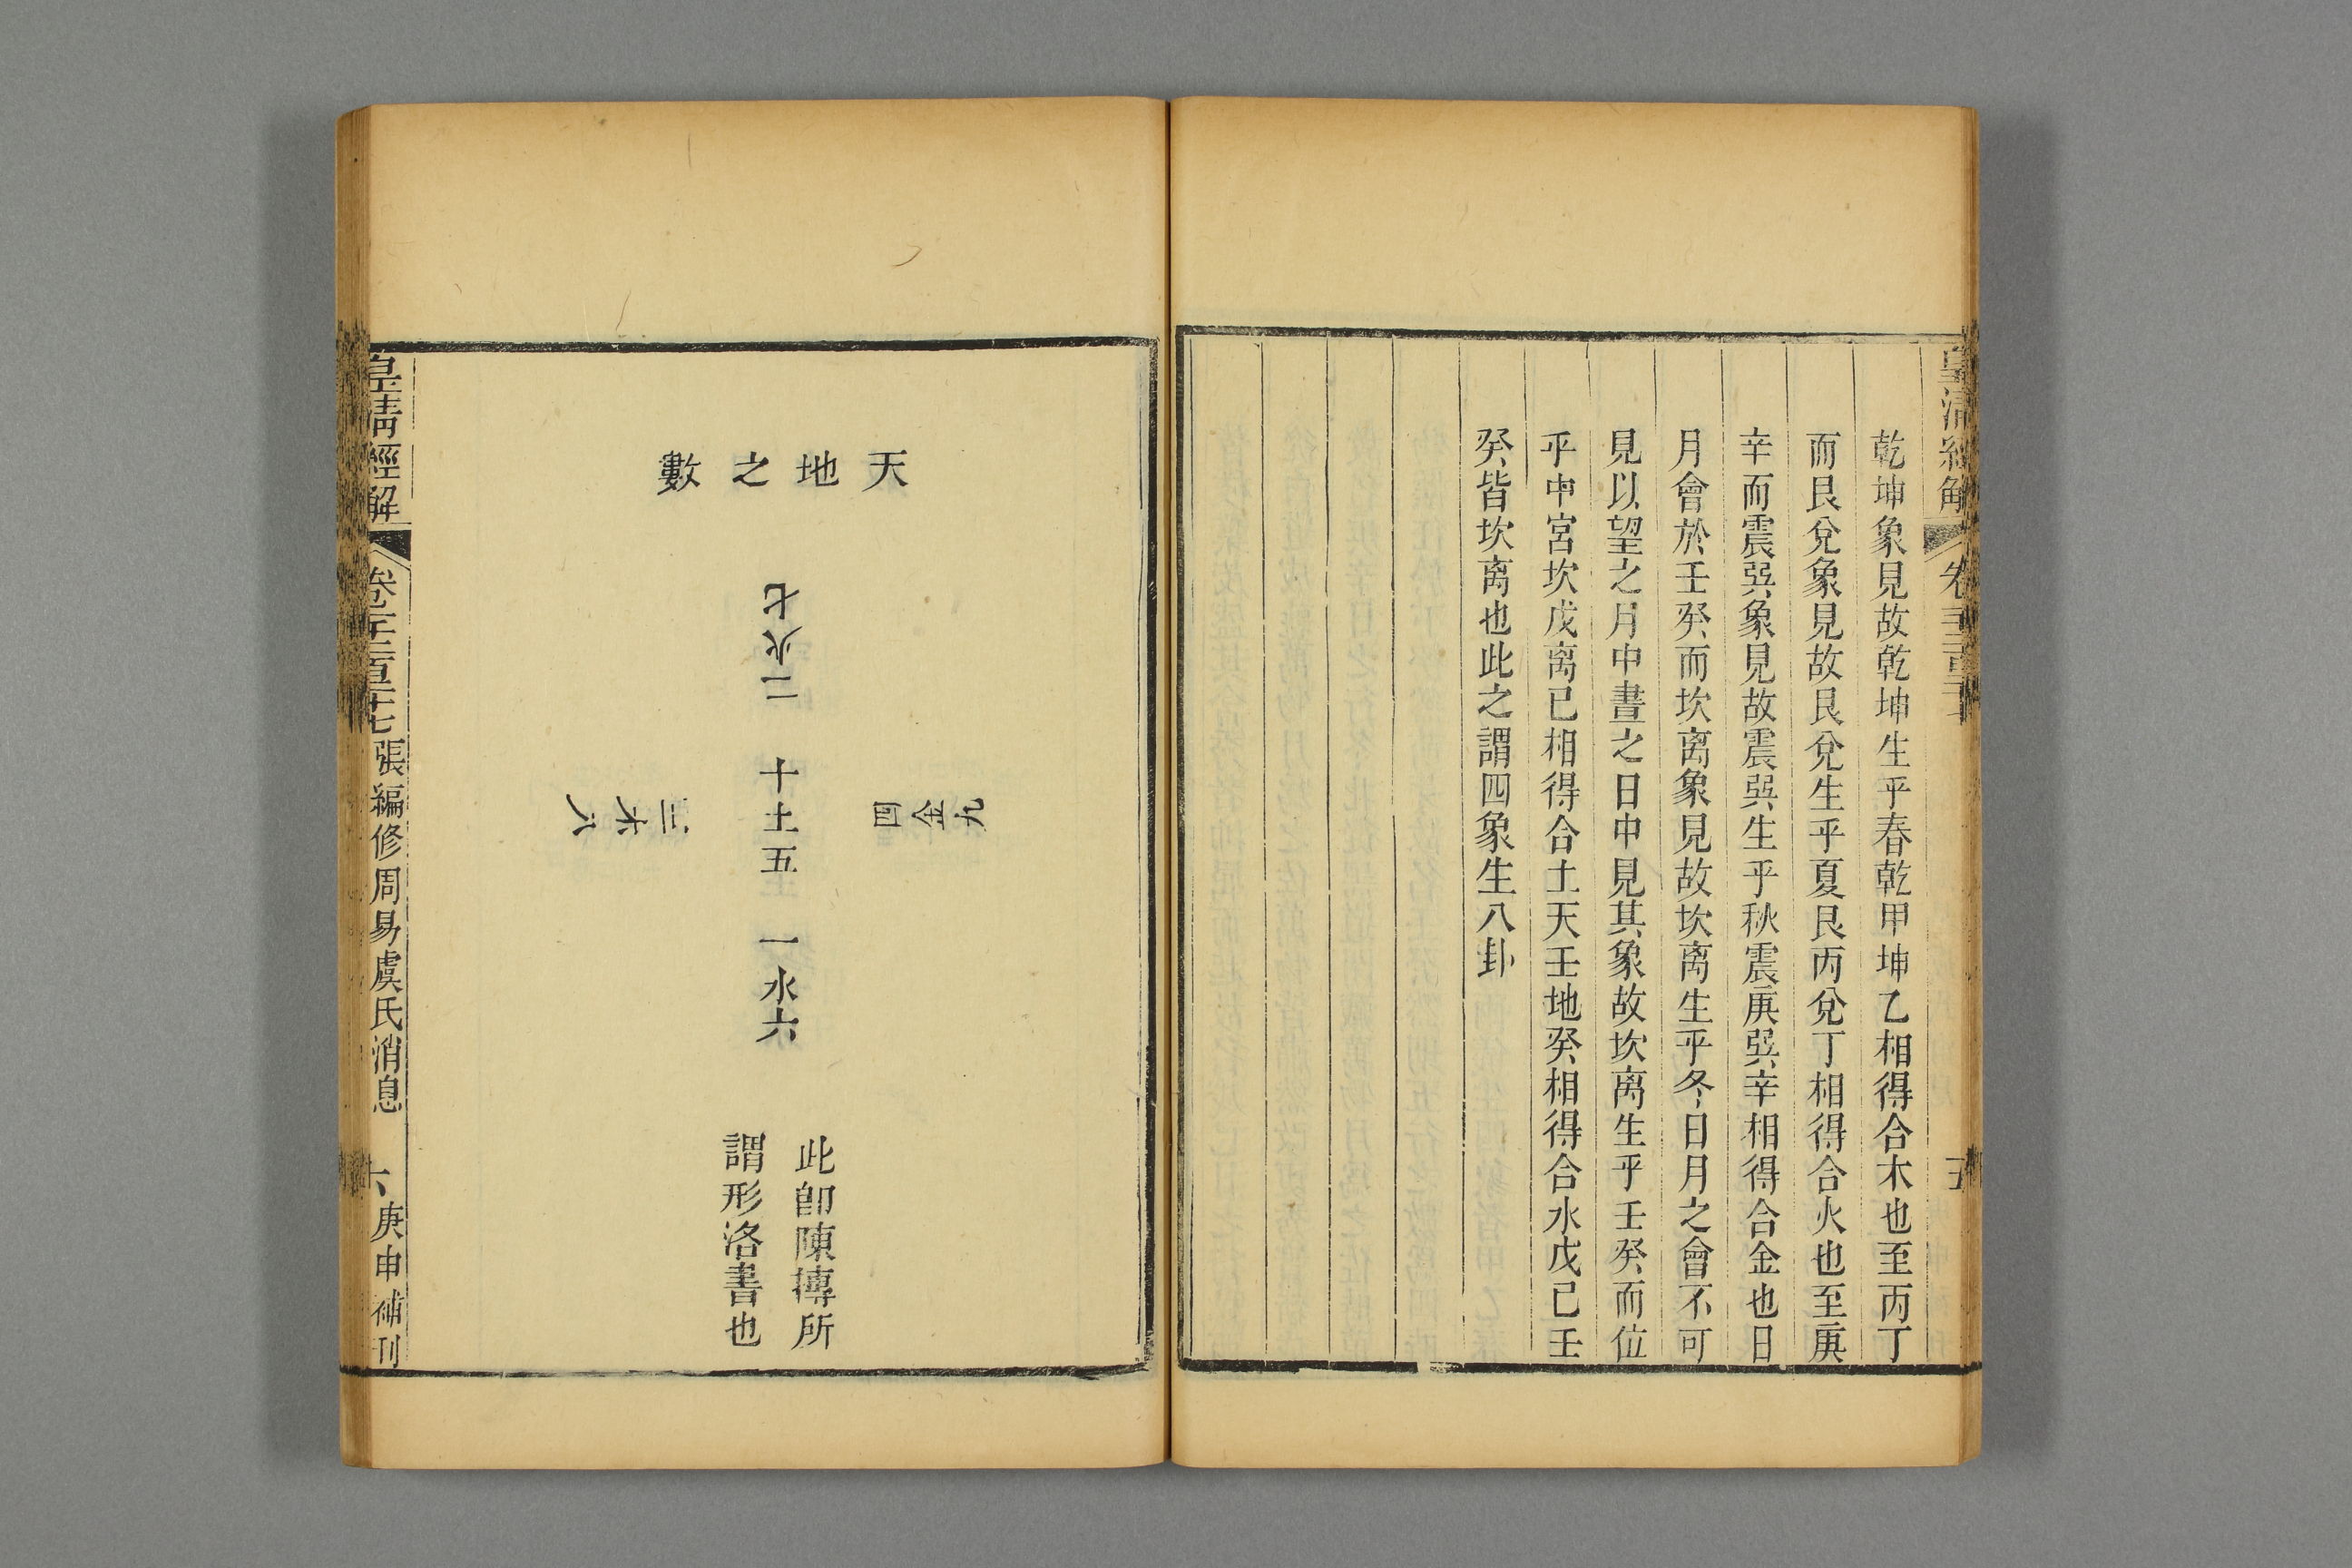 乾坤象見故乾坤生乎春乾甲坤乙相得合木也至丙丁
而艮兌象見故艮兌生乎夏艮丙兌丁相得合火也至庚
辛而震巽象見故震巽生乎秋震庚巽辛相得合金也日
月會於壬癸而坎离象見故坎离生乎冬日月之會不可
見以望之月中晝之日中見其象故坎离生乎壬癸而位
乎中宮坎戊离己相得合土天壬地癸相得合水戊己壬
癸皆坎离也此之謂四象生八卦
天地之數
七火二
九金四
十土五
三木八
一水六
此卽陳摶所
謂形洛書也
皇清經解
張編修周易虞氏消息
六
庚申補刊